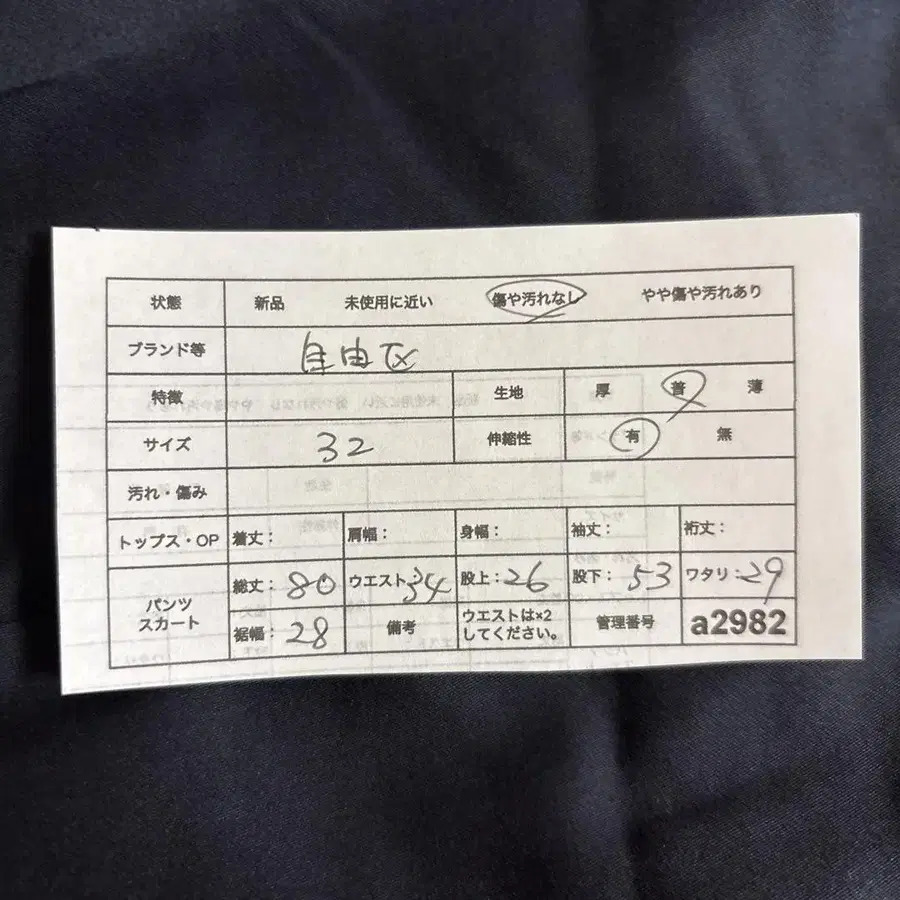 状態 新品 未使用に近い 傷や汚れなし やや傷や汚れあり
ブランド等 自由区
特徴 生地 厚 普 薄
サイズ 32 伸縮性 有 無
汚れ・傷み
トップス・OP 着丈: 肩幅: 身幅: 袖丈: 裄丈:
パンツ スカート 総丈:80 ウエスト:34 股上:26 股下:53 ワタリ:29
裾幅:28 備考 ウエストは×2 してください。 管理番号 a2982